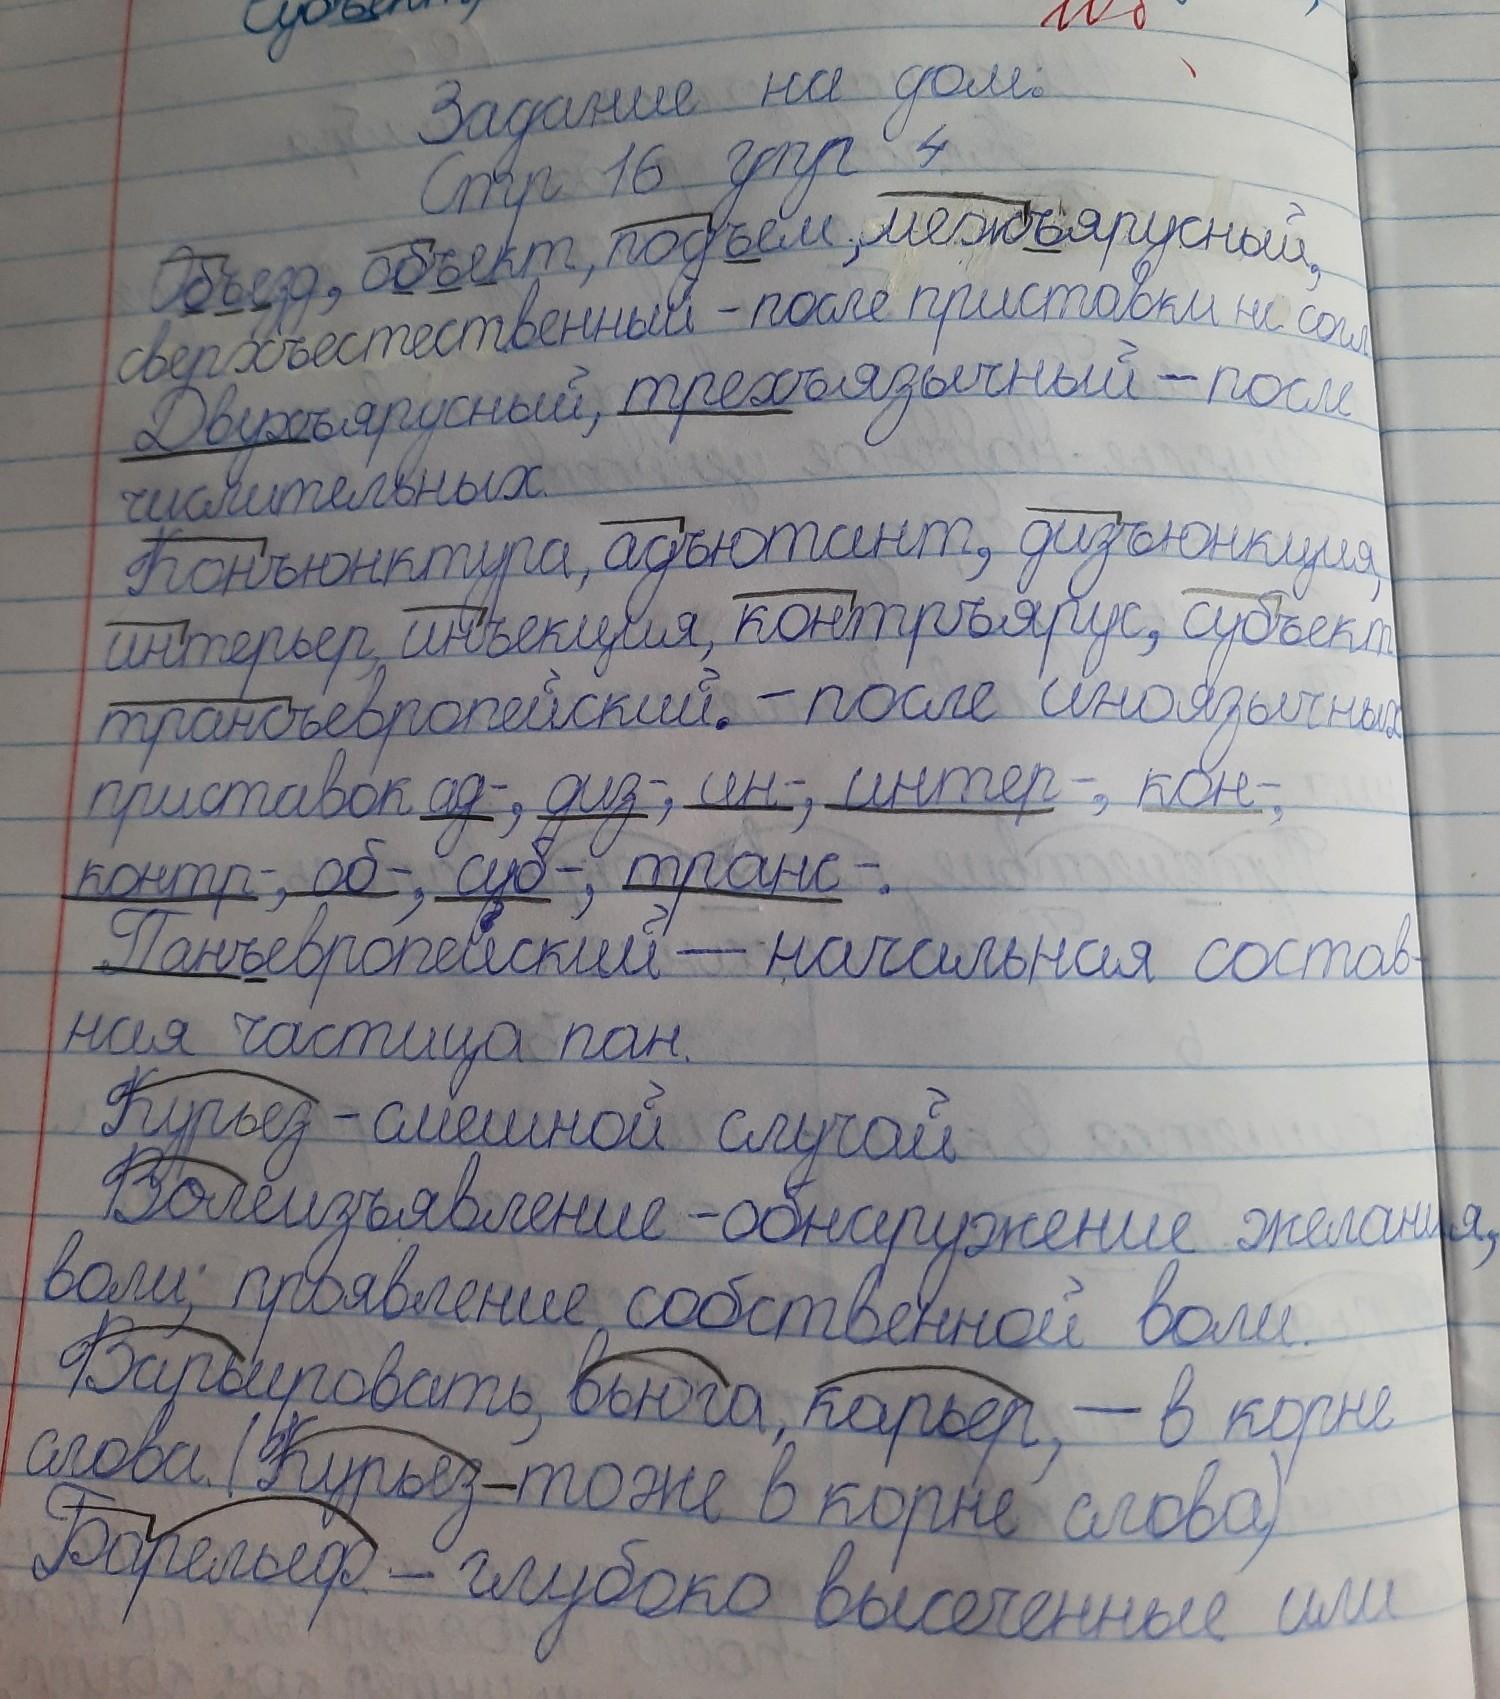 Задание на дом.
Стр 16 упр 4
Объезд, объект, подъем, межъярусный,
сверхъестественный - после приставки на согл
Двухъярусный, трехъязычный - после
числительных.
Конъюнктура, адъютант, дизъюнкция,
интерьер, инъекция, контръярус, субъект
трансъевропейский. - после иноязычных
приставок ад-, диз-, ин-, интер-, кон-,
контр-, об-, суб-, транс-.
Панъевропейский — начальная состав-
ная частица пан.
Курьез - смешной случай
Волеизъявление - обнаружение желания,
воли; проявление собственной воли.
Варьировать, вьюга, карьер, — в корне
слова. (Курьез - тоже в корне слова)
Барельеф. - глубоко высеченные или